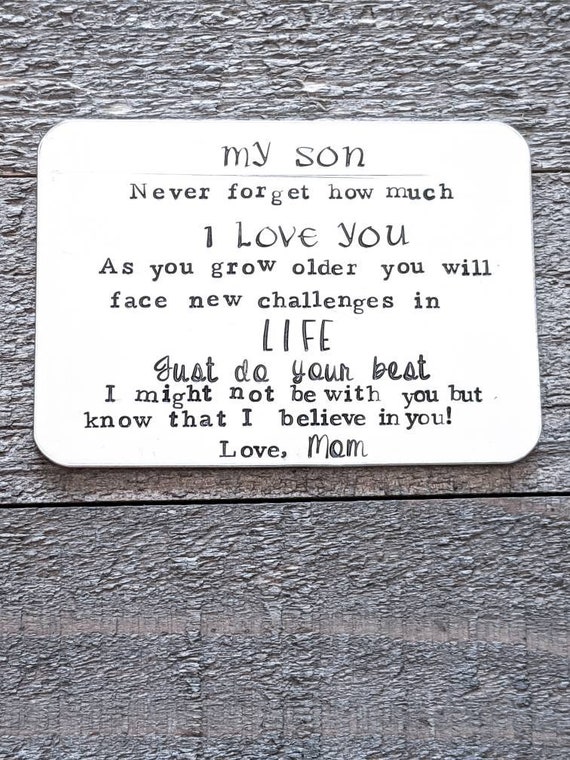 my son
Never forget how much
I Love You
As you grow older you will
face new challenges in
LIFE
Just do your best
I might not be with you but
know that I believe in you!
Love, Mom